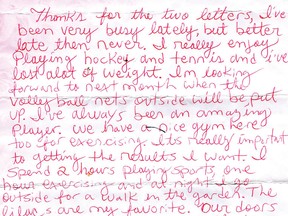 Thanks for the two letters, I've
been very busy lately, but better
late then never. I really enjoy
Playing hockey and tennis and i've
lost alot of weight. Im looking
forward to next month when the
volleyball nets outside will be put
up. I've always been an amazing
player. We have a nice gym here
too for exercising. Its really important
to getting the results I want. I
spend 2 hours playing sports, one
hour exercising and at night I go
outside for a walk in the garden. The
lilacs are my favorite. Our doors